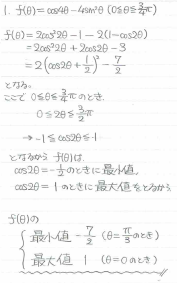 1. f(θ)=cos4θ-4sin²θ (0≦θ≦3/4π)
f(θ)=2cos²2θ-1-2(1-cos2θ)
=2cos²2θ+2cos2θ-3
=2(cos2θ+1/2)²-7/2
となる。
ここで 0≦θ≦3/4πのとき、
0≦2θ≦3/2π
→ -1≦cos2θ≦1
となるから f(θ)は、
cos2θ=-1/2のときに最小値、
cos2θ=1のときに最大値をとるから
f(θ)の
最小値 -7/2 (θ=π/3のとき)
最大値 1 (θ=0のとき)